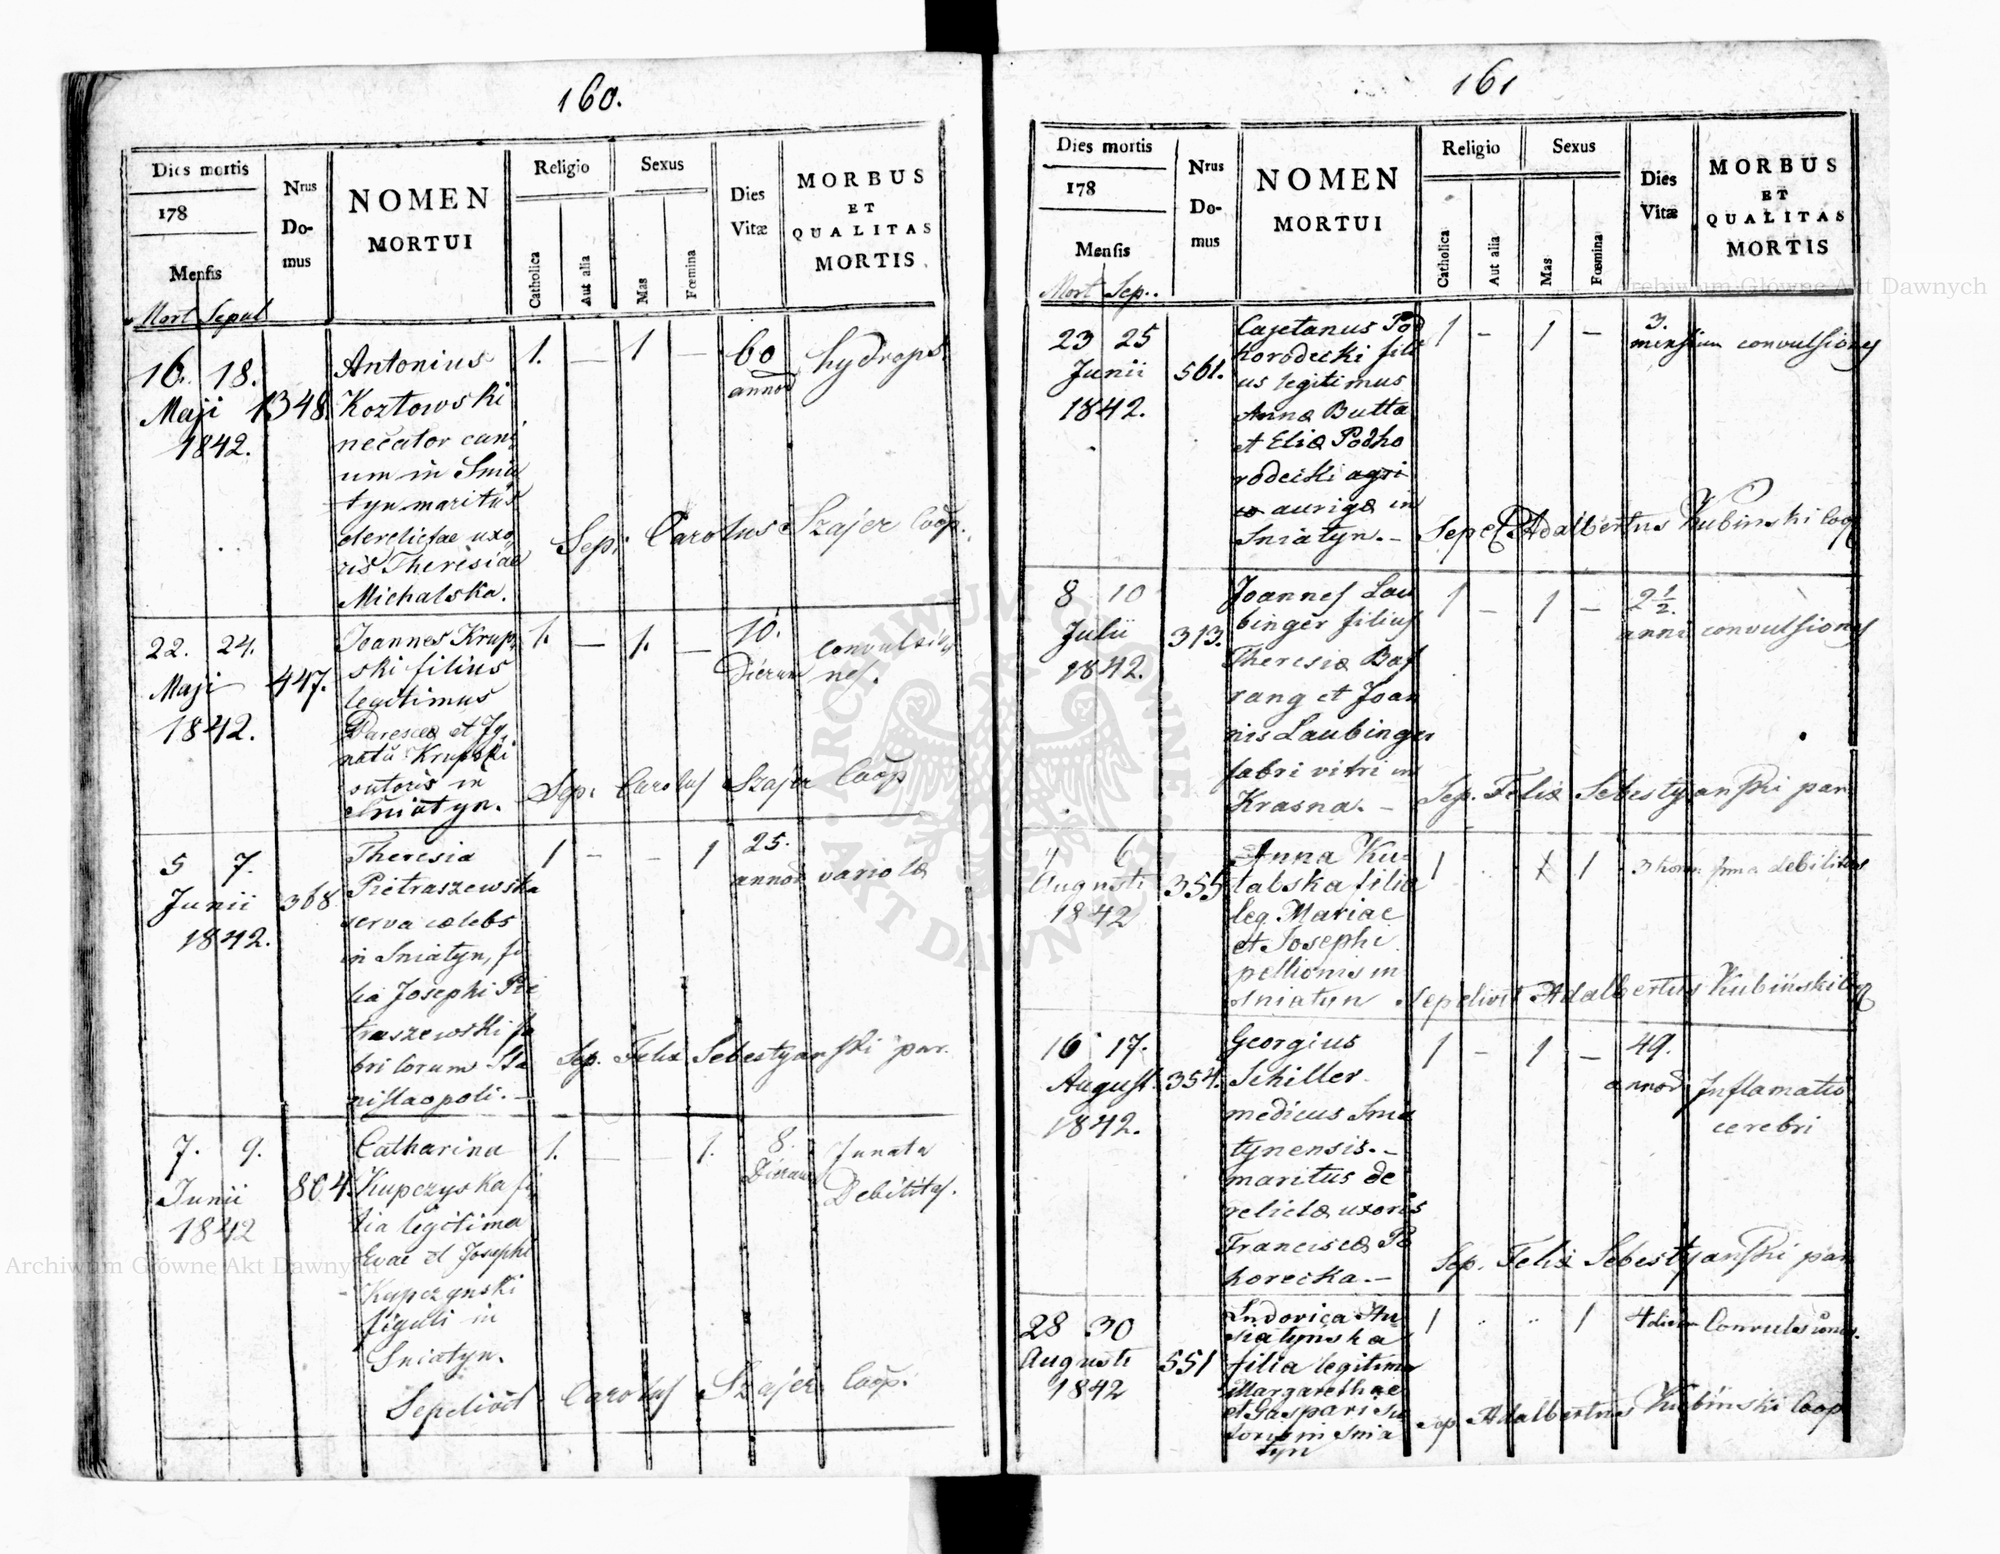 160.
Dies mortis
178
Mensis
Mort Sepul
Nrus
Do-
mus
NOMEN
MORTUI
Religio
Catholica
Aut alia
Sexus
Mas
Fœmina
Dies
Vitæ
MORBUS
ET
QUALITAS
MORTIS
16. 18.
Maji
1842.
1348.
Antonius
Kozłowski
necator cani
um in Snia
tyn maritus
derelictae uxo
ris Theresiae
Michalska.
1. — 1 —
60
annor
hydrops
Sep: Carolus Szajer Coop.
22. 24.
Maji
1842.
447.
Joannes Krup
ski filius
legitimus
et Jg
natii Krupski
sutoris in
Sniatyn.
1. — 1. —
10.
Dierum
convulsio
nes.
Sep. Carolus Szajer Coop
5 7.
Junii
1842.
368
Theresia
Pietraszewska
serva cælebs
in Sniatyn, fi
lia Josephi Pie
traszewski fa
bri lorum Sta
nislaopoli. -
1 - - 1
25.
annor
variolæ
Sep. Felix Sebestyanski par.
7. 9.
Junii
1842
804.
Catharina
Kupczyska fi
lia legitima
Evae et Josephi
Kupczynski
figuli in
Sniatyn.
1. — — 1.
8.
Dierum
Innata
Debilitas.
Sepelivit Carolus Szajer Coop.
161
Dies mortis
178
Mensis
Mort Sep..
Nrus
Do-
mus
NOMEN
MORTUI
Religio
Catholica
Aut alia
Sexus
Mas
Fœmina
Dies
Vitæ
MORBUS
ET
QUALITAS
MORTIS
23 25
Junii
1842.
561.
Cajetanus Pod
horodecki fili
us legitimus
Annæ Butta
et Eliæ Podho
rodecki agri
aurigæ in
Sniatyn. -
1 - 1 -
3.
mensium
convulsiones
Sepel Adalbertus Kubinski Coop
8 10
Julii
1842.
313.
Joannes Lau
binger filius
Theresiæ Baf
rang et Joan
nis Laubinger
fabri vitri in
Krasna. -
1 - 1 -
2 1/2.
anni
convulsiones
Sep. Felix Sebestyanski par
4 6
Augusti
1842
355
Anna Ku-
labska filia
leg. Mariae
et Josephi
pellionis in
Sniatyn
1 1
3 horar
debilitas
Sepelivit Adalbertus Kubinski Coop
16 17.
August.
1842.
354.
Georgius
Schiller
medicus Snia
tynensis. -
maritus de
relictæ uxoris
Franciscæ Po
horecka. -
1 - 1 -
49.
annor
Inflamatio
cerebri
Sep. Felix Sebestyanski par
28 30
Augusti
1842
551
Ludovica Hu
siatynska
filia legitima
Margarethae
et Gaspari su
toris in Snia
tyn
1 .. .. 1
4 dierum
Convulsiones.
Sep Adalbertus Kubinski Coop
Archiwum Główne Akt Dawnych
Archiwum Główne Akt Dawnych
ARCHIWUM GŁÓWNE AKT DAWNYCH